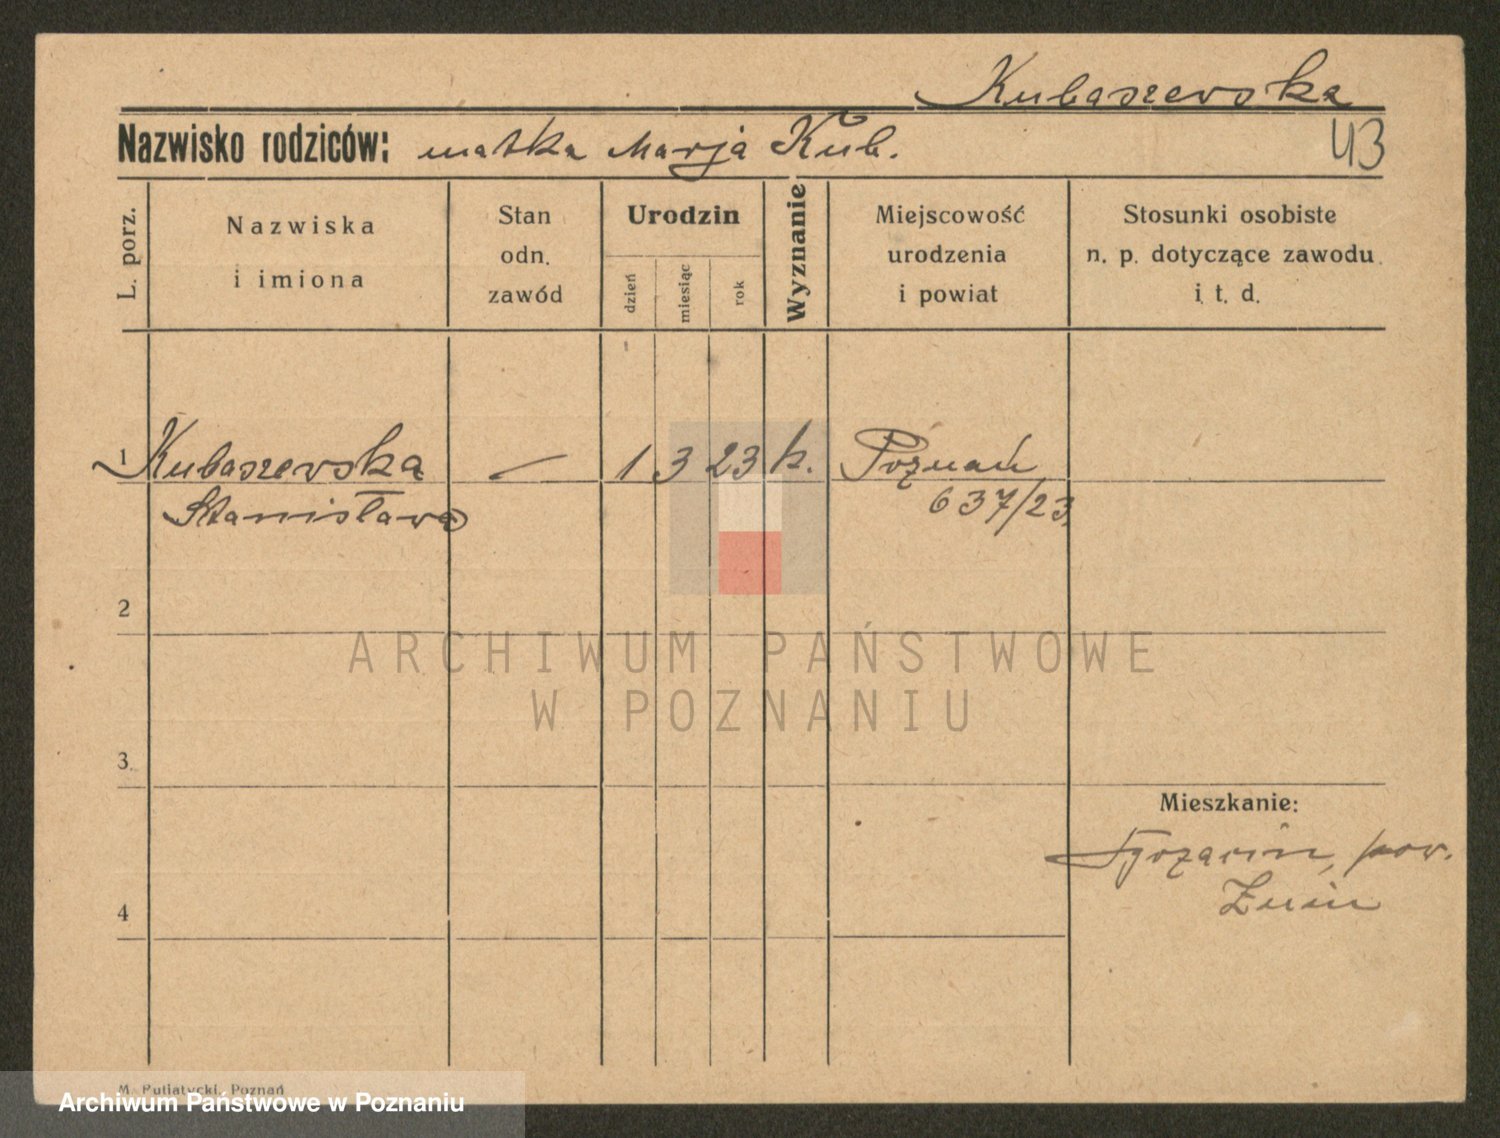 Kubaszewska
Nazwisko rodziców: matka Marja Kub.
43
L. porz.
Nazwiska
i imiona
Stan
odn.
zawód
Urodzin
dzień
miesiąc
rok
Wyznanie
Miejscowość
urodzenia
i powiat
Stosunki osobiste
n. p. dotyczące zawodu
i t. d.
1 Kubaszewska — 1 3 23 k. Poznań
Stanisława 637/23
2
ARCHIWUM PAŃSTWOWE
W POZNANIU
3
Mieszkanie:
pow.
Żnin
4
M. Putiatycki, Poznań
Archiwum Państwowe w Poznaniu